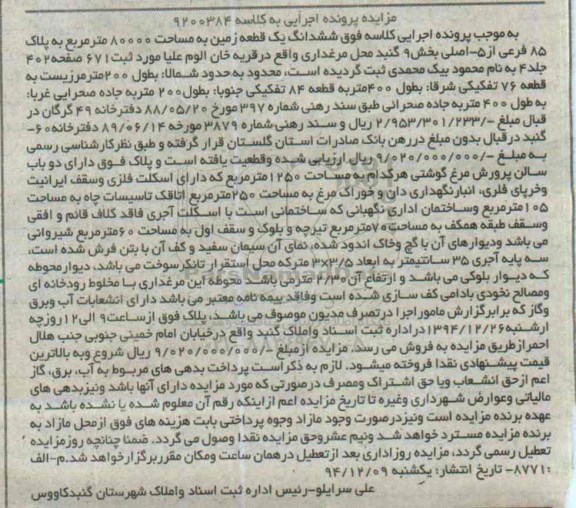 مزایده پرونده اجرایی به کلاسه ۹۲۰۰۳۸۴
به موجب پرونده اجرایی کلاسه فوق ششدانگ یک قطعه زمین به مساحت ۸۰۰۰۰ مترمربع به پلاک
۸۵ فرعی از۵-اصلی بخش۹ گنبد محل مرغداری واقع درقریه خان الوم علیا مورد ثبت۶۷۱ صفحه۴۰۲
جلد۴ به نام محمود بیک محمدی ثبت گردیده است، محدود به حدود شمالا: بطول ۲۰۰مترمرزیست به
قطعه ۷۶ تفکیکی شرقا: بطول ۴۰۰متربه قطعه ۸۴ تفکیکی جنوبا: بطول۲۰۰ متربه جاده صحرایی غربا:
به طول ۴۰۰ متربه جاده صحرائی طبق سند رهنی شماره ۳۹۷ مورخ ۸۸/۰۵/۲۰ دفترخانه ۴۹ گرگان در
قبال مبلغ -/۲/۹۵۳/۳۰۱/۲۳۳ ریال و سند رهنی شماره ۳۸۷۹ مورخه ۸۹/۰۶/۱۴ دفترخانه ۶۰-
گنبد درقبال بدون مبلغ دررهن بانک صادرات استان گلستان قرار گرفته و طبق نظرکارشناسی رسمی
به مبلغ -/۹/۰۲۰/۰۰۰/۰۰۰ ریال ارزیابی شده وقطعیت یافته است و پلاک فوق دارای دو باب
سالن پرورش مرغ گوشتی هرکدام به مساحت ۱۲۵۰مترمربع که دارای اسکلت فلزی وسقف ایرانیت
وخرپای فلزی، انبارنگهداری دان و خوراک مرغ به مساحت ۲۵۰مترمربع اتاقک تاسیسات چاه به مساحت
۱۰۵مترمربع وساختمان اداری نگهبانی که ساختمانی است با اسکلت آجری فاقد کلاف قائم و افقی
وسقف طبقه همکف به مساحت ۷۰مترمربع تیرچه و بلوک و سقف اول به مساحت ۶۰مترمربع شیروانی
می باشد ودیوارهای آن با گچ وخاک اندود شده، نمای آن سیمان سفید و کف آن با بتن فرش شده است،
سه پایه آجری ۳۵ سانتیمتر به ابعاد ۳×۳/۵ مترکه محل استقرار تانکرسوخت می باشد، دیوارمحوطه
که دیوار بلوکی می باشد و ارتفاع آن۲/۳۰ مترمی باشد محوطه این مرغداری با مخلوط رودخانه ای
ومصالح نخودی بادامی کف سازی شده است وفاقد بیمه نامه معتبر می باشد دارای انشعابات آب وبرق
وگاز که برابرگزارش مامور اجرا درتصرف مدیون موصوف می باشد، پلاک فوق ازساعت۹ الی۱۲روزچه
ارشنبه۱۳۹۴/۱۲/۲۶دراداره ثبت اسناد واملاک گنبد واقع درخیابان امام خمینی جنوبی جنب هلال
احمرازطریق مزایده به فروش می رسد. مزایده ازمبلغ -/۹/۰۲۰/۰۰۰/۰۰۰ ریال شروع وبه بالاترین
قیمت پیشنهادی نقدا فروخته میشود. لازم به ذکراست پرداخت بدهی های مربوط به آب، برق، گاز
اعم ازحق انشعاب ویا حق اشتراک ومصرف درصورتی که مورد مزایده دارای آنها باشد ونیزبدهی های
مالیاتی وعوارض شهرداری وغیره تا تاریخ مزایده اعم ازاینکه رقم آن معلوم شده یا نشده باشد به
عهده برنده مزایده است ونیزدرصورت وجود مازاد وجوه پرداختی بابت هزینه های فوق ازمحل مازاد به
برنده مزایده مسترد خواهد شد ونیم عشروحق مزایده نقدا وصول می گردد. ضمنا چنانچه روزمزایده
تعطیل رسمی گردد، مزایده روزاداری بعد ازتعطیل درهمان ساعت ومکان مقرربرگزارخواهد شد.م-الف
:۸۷۷۱- تاریخ انتشار: یکشنبه ۹۴/۱۲/۰۹
علی سرایلو-رئیس اداره ثبت اسناد واملاک شهرستان گنبدکاووس